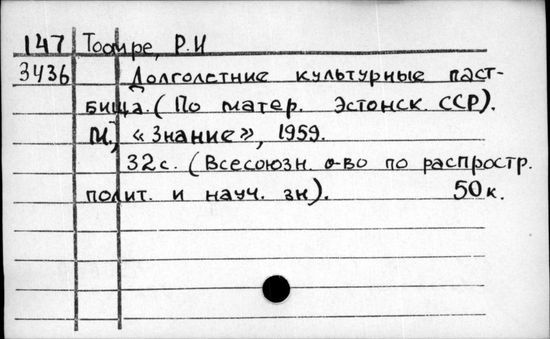 147 Тоомре, Р.И
3436 Долголетние культурные паст-
бища. (По матер. Эстонск. ССР).
М., «Знание», 1959.
32 с. (Всесоюзн. о-во по распростр.
полит. и науч. зн). 50 к.